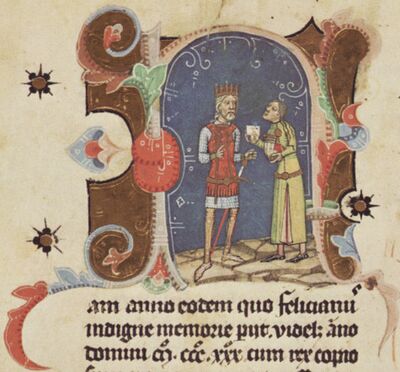 Nam anno eodem quo felicianu
indigne memorie videlʒ āno
domini ccc. xxx cum rex copio